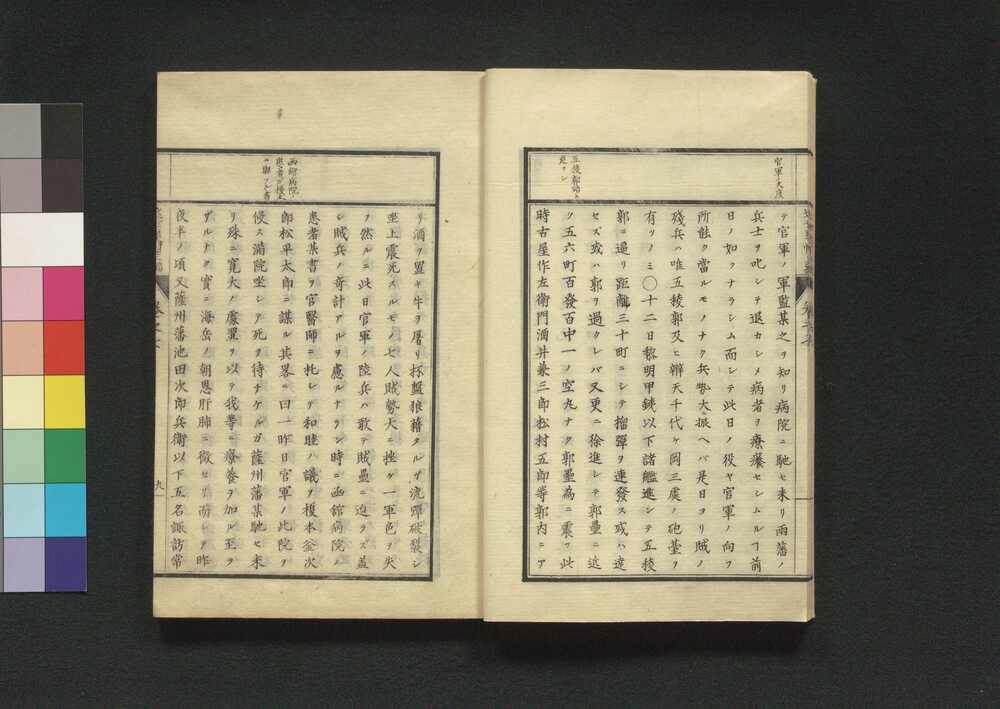 官軍大度
テ官軍ノ軍監某之ヲ知リ病院ニ馳セ来リ両藩ノ
兵士ヲ叱シテ退カシメ病者ヲ療養セシムルヿ前
日ノ如クナラシム而シテ此日ノ役ヤ官軍ノ向フ
所能ク當ルモノナク兵勢大ニ振ヘバ是日ヨリ賊ノ
残兵ハ唯五稜郭及ヒ辯天千代ヶ岡三處ノ砲臺ヲ
有リノミ〇十二日黎明甲鐵以下諸艦進シテ五稜
郭ニ逼リ距離三十町ニシテ榴彈ヲ連發ス或ハ達
セズ或ハ郭ヲ過クレバ又更ニ徐進シテ郭壘ニ近
ク五六町百發百中一ノ空丸ナク郭壘為ニ震フ此
時古屋作左衛門酒井兼三郎松村五郎等郭内ニア
リ酒ヲ置キ牛ヲ屠リ杯盤狼藉タルザ流彈破裂シ
坐上震死スルモノ七人賊勢大ニ挫ケ一軍色ヲ失
フ然ルニ此日官軍ノ陸兵ハ敢テ賊壘ニ迫ラズ蓋
シ賊兵ノ奇計アルヲ慮ルナラン時ニ函館病院ノ
患者某書ヲ官醫師ニ托シテ和睦ノ議ヲ榎本釜次
郎松平太郎ニ謀ル其畧ニ曰一昨日官軍ノ此院ヲ
侵ス滿院坐シテ死ヲ待チケルガ薩州藩某馳セ来
リ殊ニ寛大ノ處置ヲ以テ我等ニ療養ヲ加ル至ラ
ザルナク實ニ海岳ノ朝恩肝肺ニ徹セリ而シテ昨
夜半ノ頃又薩州藩池田次郎兵衛以下五名諏訪常
九